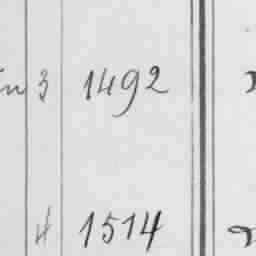 3 1492
4 1514